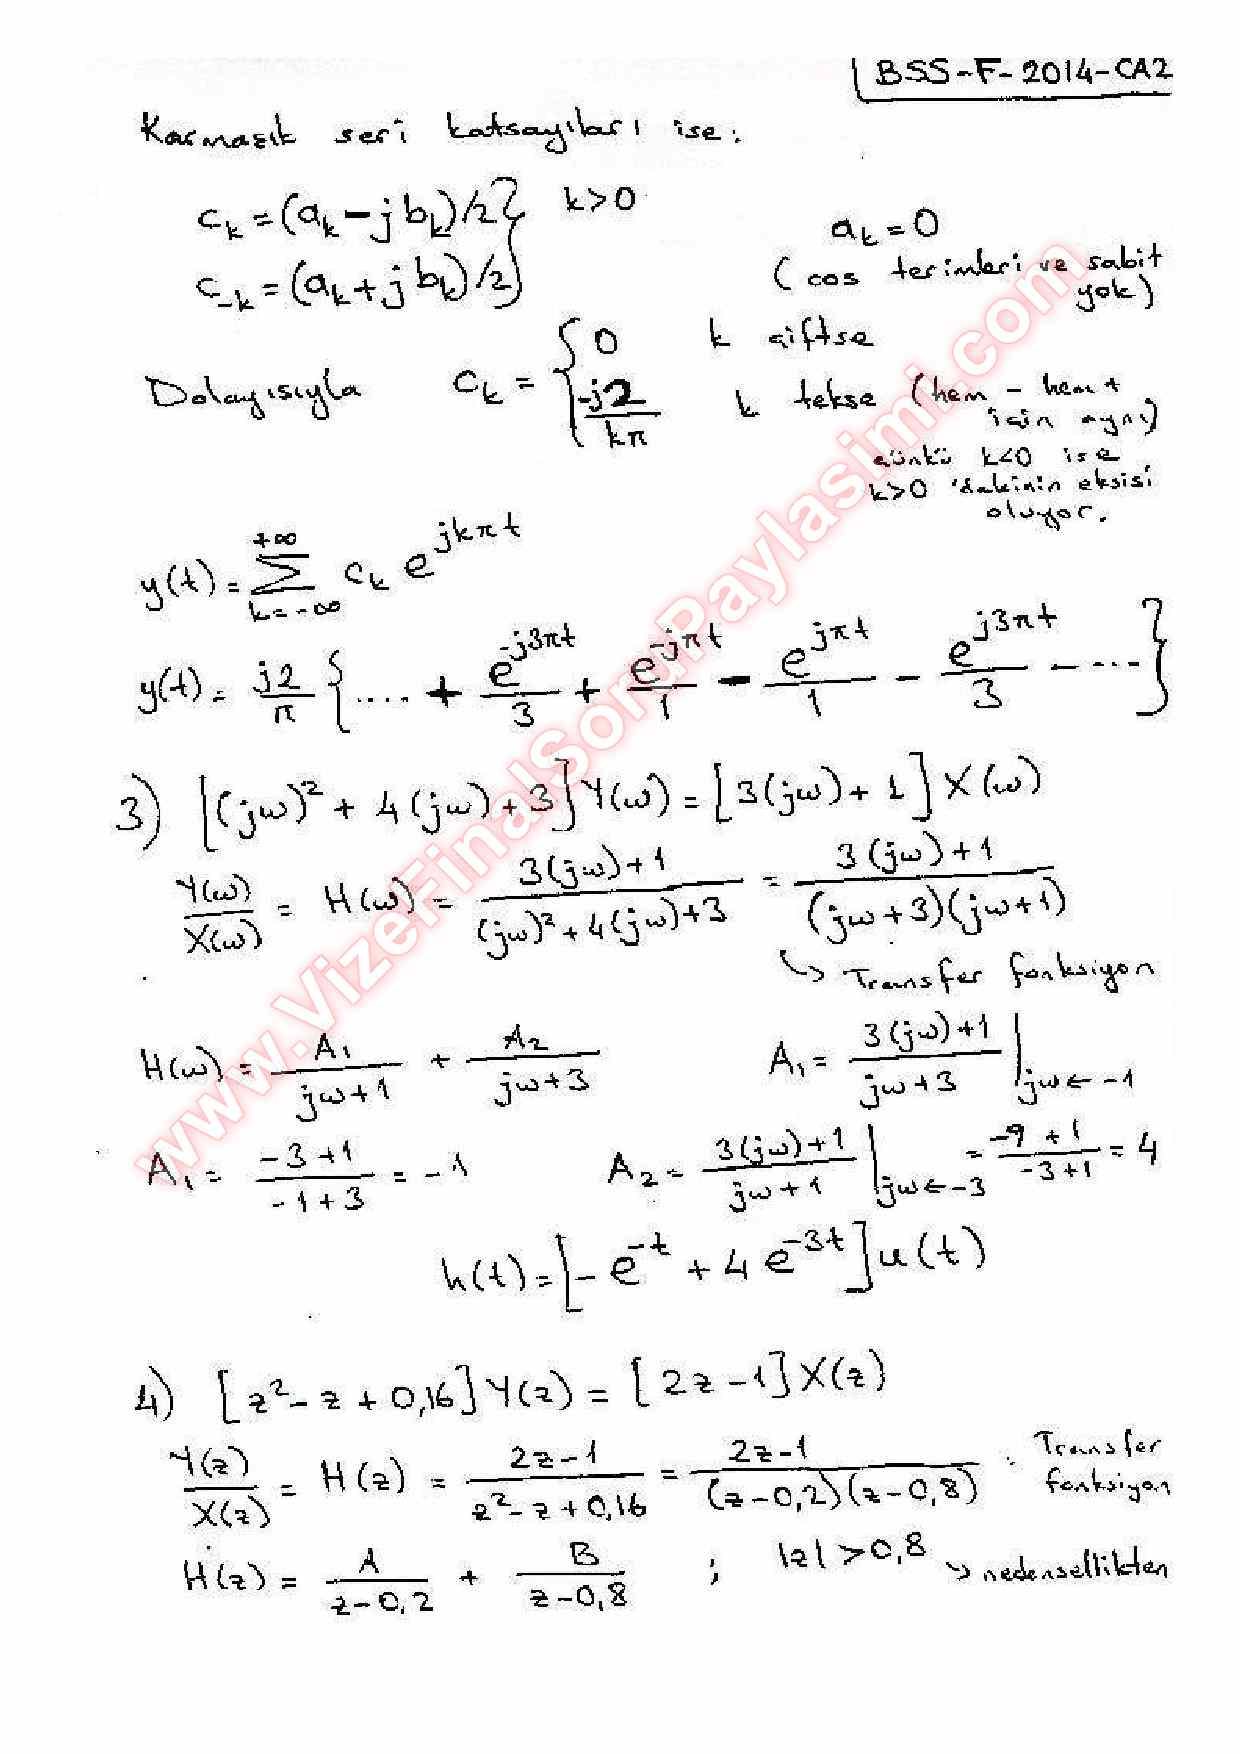 BSS-F-2014-CA2
Karmaşık seri katsayıları ise:
c_k = (a_k - j b_k)/2 } k>0
c_-k = (a_k + j b_k)/2 }
a_k = 0
( cos terimleri ve sabit
yok )
Dolayısıyla c_k = { 0 k çiftse
-j2/kπ k tekse (hem - hem +
için aynı)
çünkü k<0 ise
k>0 'dakinin eksisi
oluyor.
y(t) = Σ_{k=-∞}^{+∞} c_k e^{jkπt}
y(t) = j2/π { .... + e^{-j3πt}/3 + e^{-jπt}/1 - e^{jπt}/1 - e^{j3πt}/3 - .... }
3) [(jω)² + 4(jω) + 3] Y(ω) = [3(jω) + 1] X(ω)
Y(ω)/X(ω) = H(ω) = (3(jω)+1)/((jω)² + 4(jω) + 3) = (3(jω)+1)/((jω+3)(jω+1))
↳ Transfer fonksiyon
H(ω) = A₁/(jω+1) + A₂/(jω+3) A₁ = (3(jω)+1)/(jω+3) | jω ← -1
A₁ = (-3+1)/(-1+3) = -1 A₂ = (3(jω)+1)/(jω+1) | jω ← -3 = (-9+1)/(-3+1) = 4
h(t) = [-e^{-t} + 4e^{-3t}] u(t)
4) [z² - z + 0,16] Y(z) = [2z - 1] X(z)
Y(z)/X(z) = H(z) = (2z-1)/(z² - z + 0,16) = (2z-1)/((z-0,2)(z-0,8)) : Transfer
fonksiyon
H(z) = A/(z-0,2) + B/(z-0,8) ; |z| > 0,8 ↳ nedensellikten
www.VizeFinalSoruPaylasimi.com